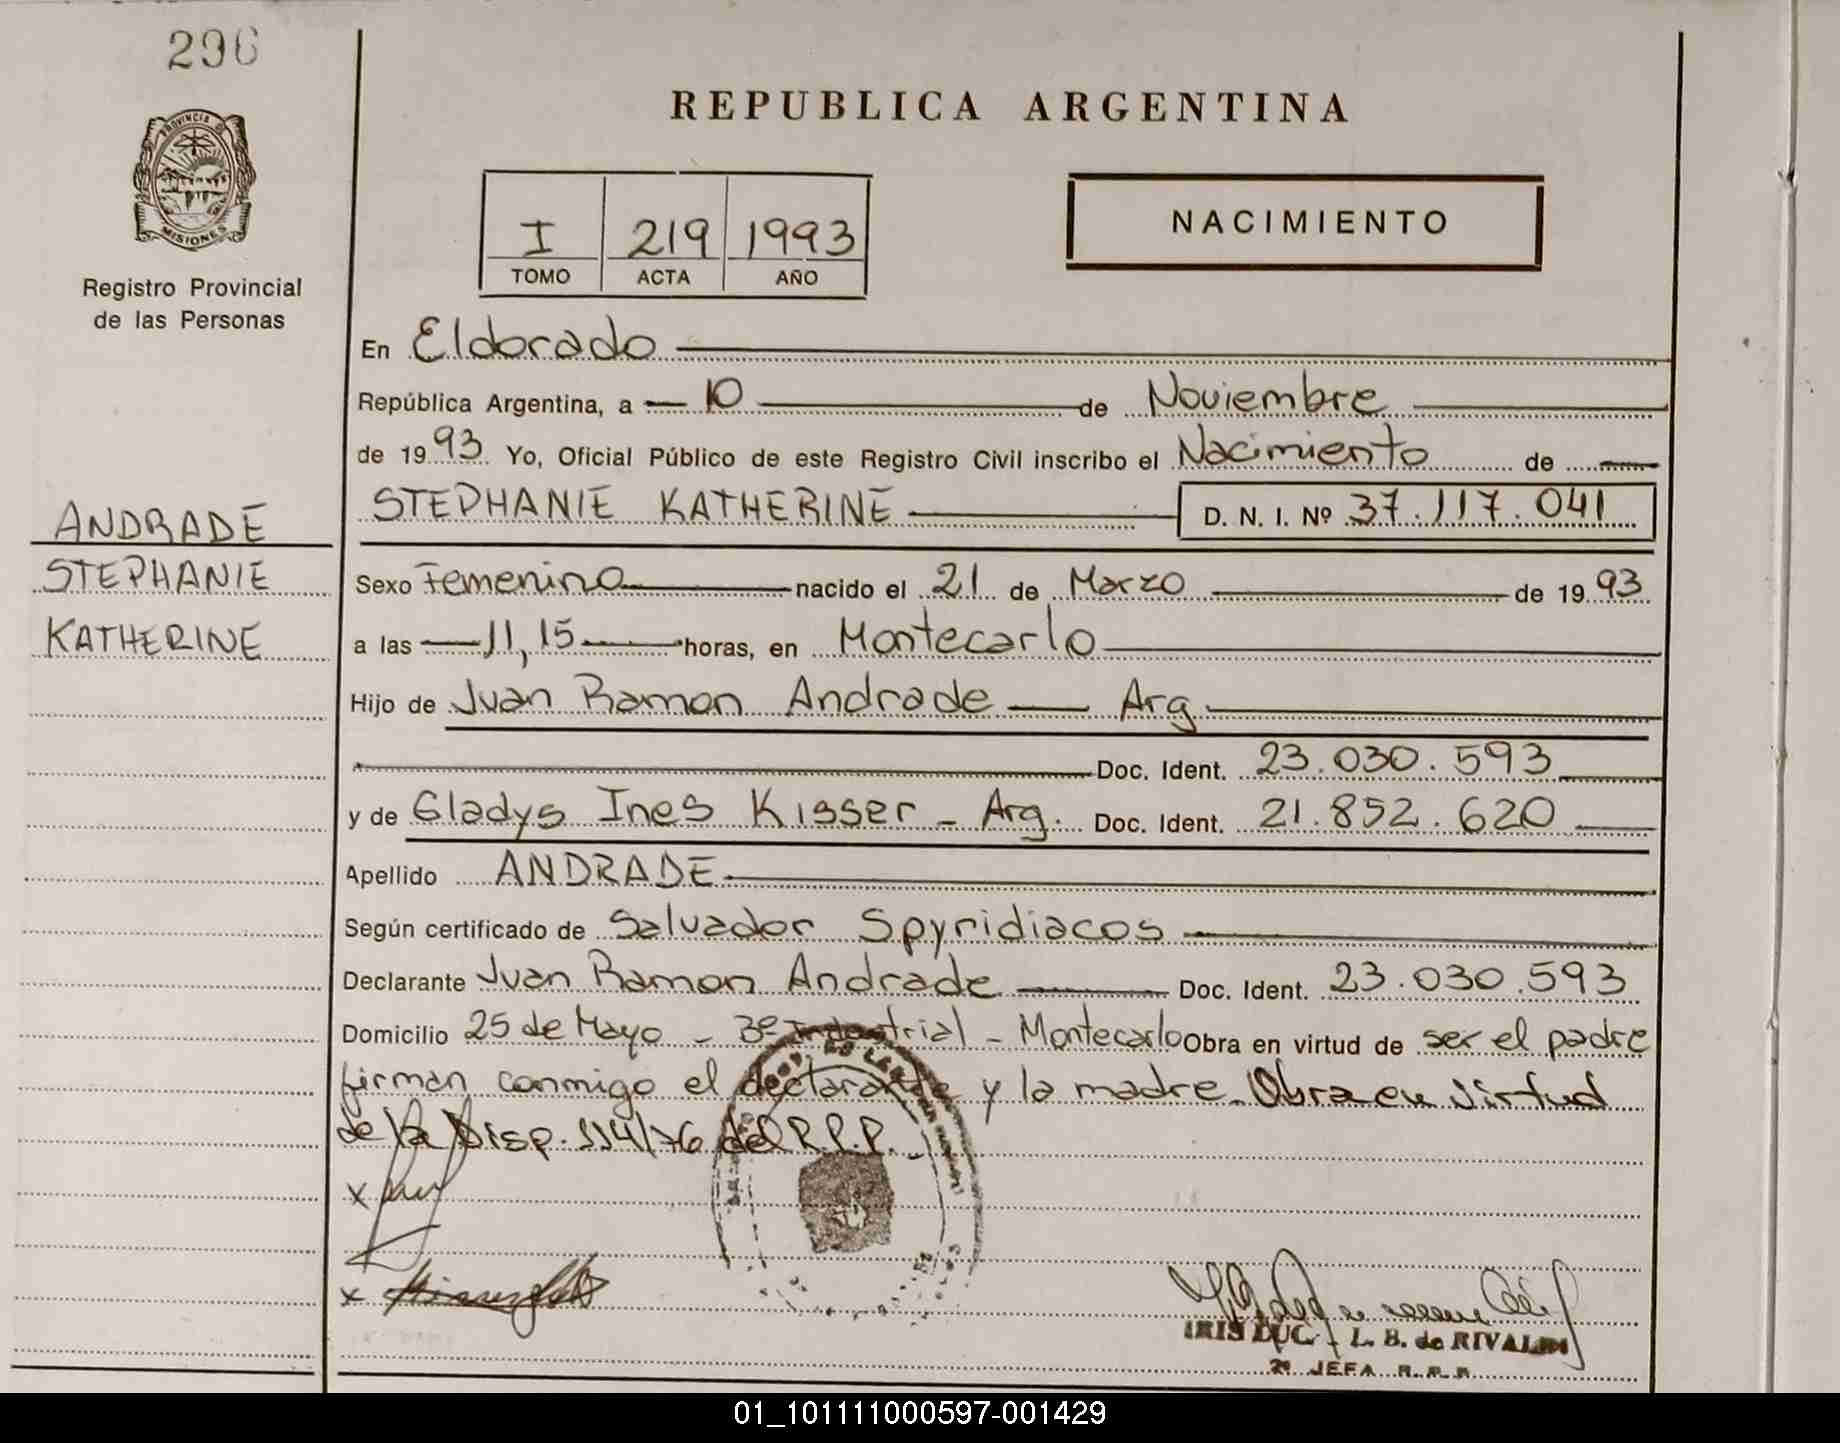 296
REPUBLICA ARGENTINA
PROVINCIA DE
MISIONES
Registro Provincial
de las Personas
I 219 1993
TOMO ACTA AÑO
NACIMIENTO
En Eldorado
República Argentina, a 10 de Noviembre
de 1993 Yo, Oficial Público de este Registro Civil inscribo el Nacimiento de
STEPHANIE KATHERINE D. N. I. Nº 37.117.041
ANDRADE
STEPHANIE
KATHERINE
Sexo Femenino nacido el 21 de Marzo de 1993
a las 11,15 horas, en Montecarlo
Hijo de Juan Ramon Andrade Arg
Doc. Ident. 23.030.593
y de Gladys Ines Kisser - Arg. Doc. Ident. 21.852.620
Apellido ANDRADE
Según certificado de Salvador Spyridiacos
Declarante Juan Ramon Andrade Doc. Ident. 23.030.593
Domicilio 25 de Mayo - Bº Industrial - Montecarlo Obra en virtud de ser el padre
firman conmigo el declarante y la madre. Obra en virtud
de la Disp. 114/76 del R.P.P.
x
x
IRIS LUC. L. B. de RIVALDI
2ª JEFA R.P.P.
01_101111000597-001429